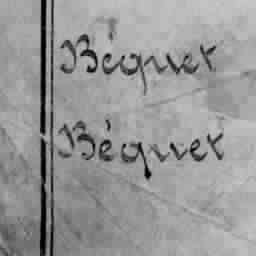 Béquet
Béquet